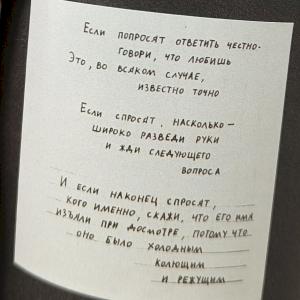 Если попросят ответить честно-
говори, что любишь
Это, во всяком случае,
известно точно
Если спросят, насколько –
широко разведи руки
и жди следующего
вопроса
И если наконец спросят,
кого именно, скажи, что его имя
изъяли при досмотре, потому что
оно было холодным
колющим
и режущим